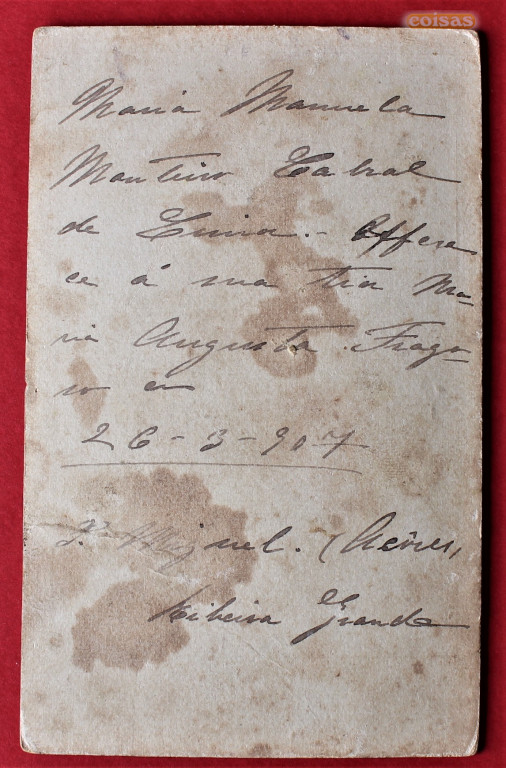 coisas
Maria Manuela
Monteiro Cabral
de Lima. - Offere
ce á sua tia Ma-
ria Augusta Frago-
so em
26-3-907
S. Miguel. (Açôres,
Ribeira Grande